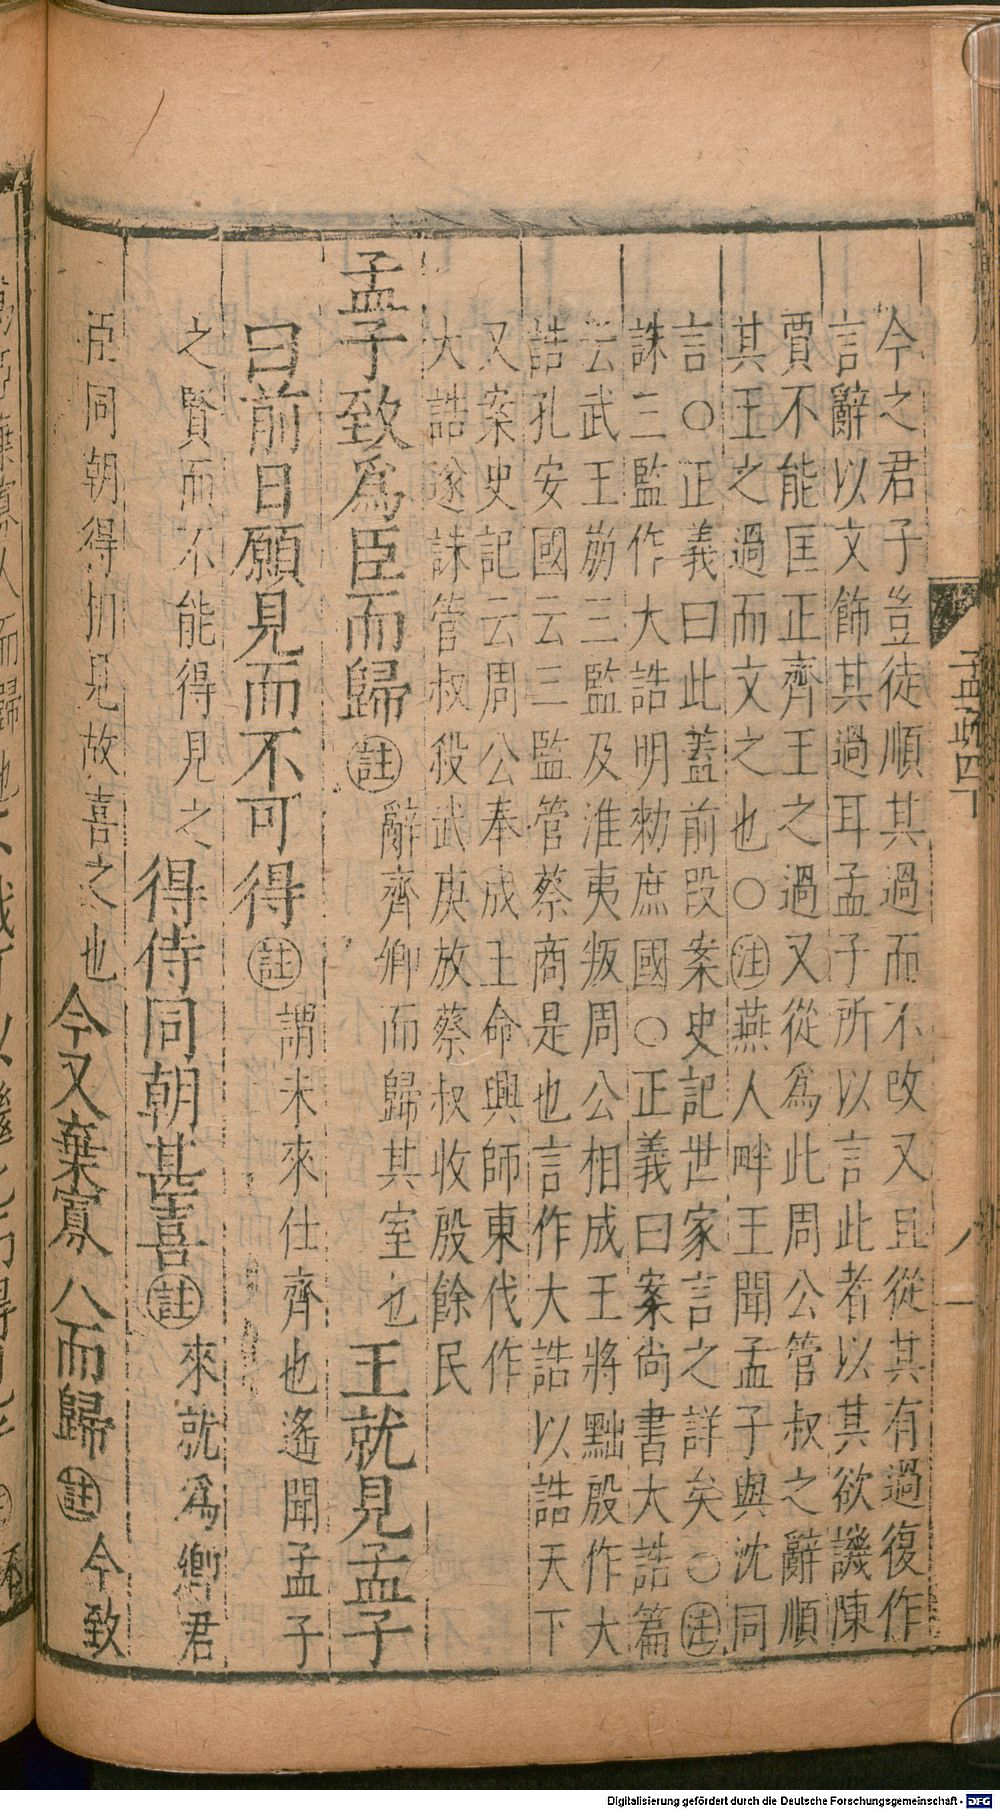 今之君子豈徒順其過而不改又且從其有過復作
言辭以文飾其過耳孟子所以言此者以其欲譏陳
賈不能匡正齊王之過又從爲此周公管叔之辭順
其王之過而文之也○注燕人畔王聞孟子與沈同
言○正義曰此蓋前段案史記世家言之詳矣○注
誅三監作大誥明勑庶國○正義曰案尚書大誥篇
云武王崩三監及淮夷叛周公相成王將黜殷作大
誥孔安國云三監管蔡商是也言作大誥以誥天下
又案史記云周公奉成王命興師東伐作
大誥遂誅管叔殺武庚放蔡叔收殷餘民
孟子致爲臣而歸註辭齊卿而歸其室也王就見孟子
曰前日願見而不可得註謂未來仕齊也遙聞孟子
之賢而不能得見之得侍同朝甚喜註來就爲卿君
臣同朝得相見故喜之也今又棄寡人而歸註今致
孟疏四下
Digitalisierung gefördert durch die Deutsche Forschungsgemeinschaft - DFG